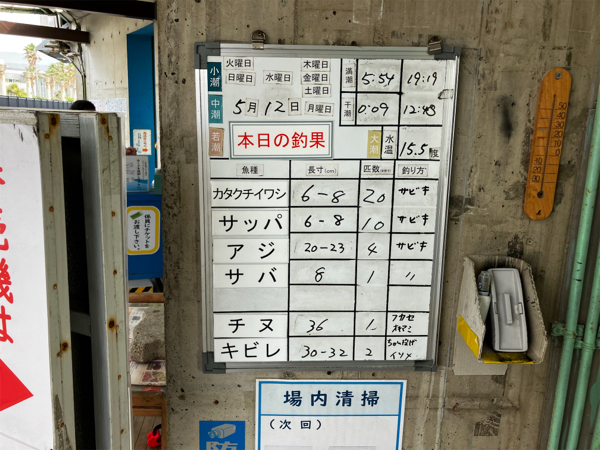 小潮
火曜日
木曜日
日曜日
水曜日
金曜日
土曜日
満潮
5:54
19:19
中潮
5月12日
月曜日
干潮
0:09
12:43
若潮
本日の釣果
大潮
水温
15.5度
魚種
長寸(cm)
匹数
釣り方
カタクチイワシ
6-8
20
サビキ
サッパ
6-8
10
サビキ
アジ
20-23
4
サビキ
サバ
8
1
〃
チヌ
36
1
フカセ
オキアミ
キビレ
30-32
2
イソメ
係員にチケットを
お渡し下さい。
機は
場内清掃
(次回)
防